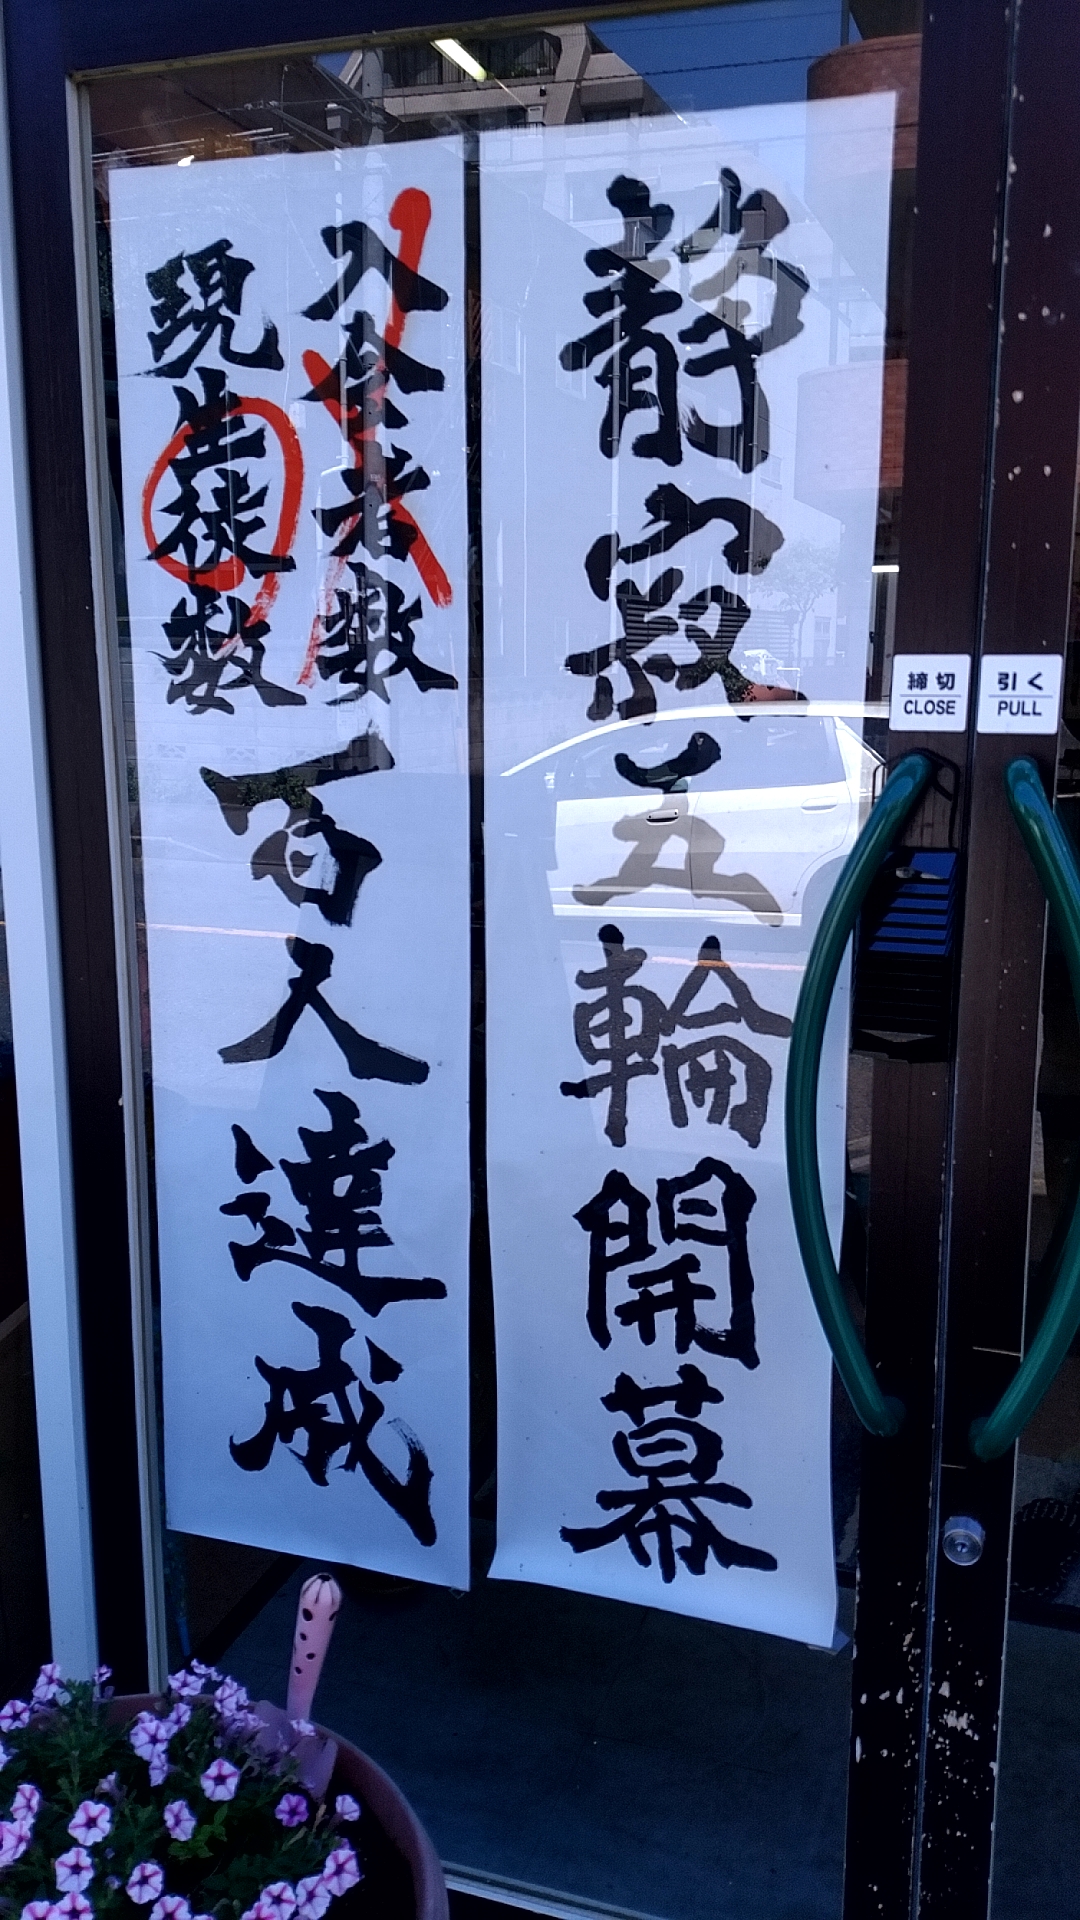 静寂五輪開幕
入会者数
現生徒数
百人達成
締切
CLOSE
引く
PULL